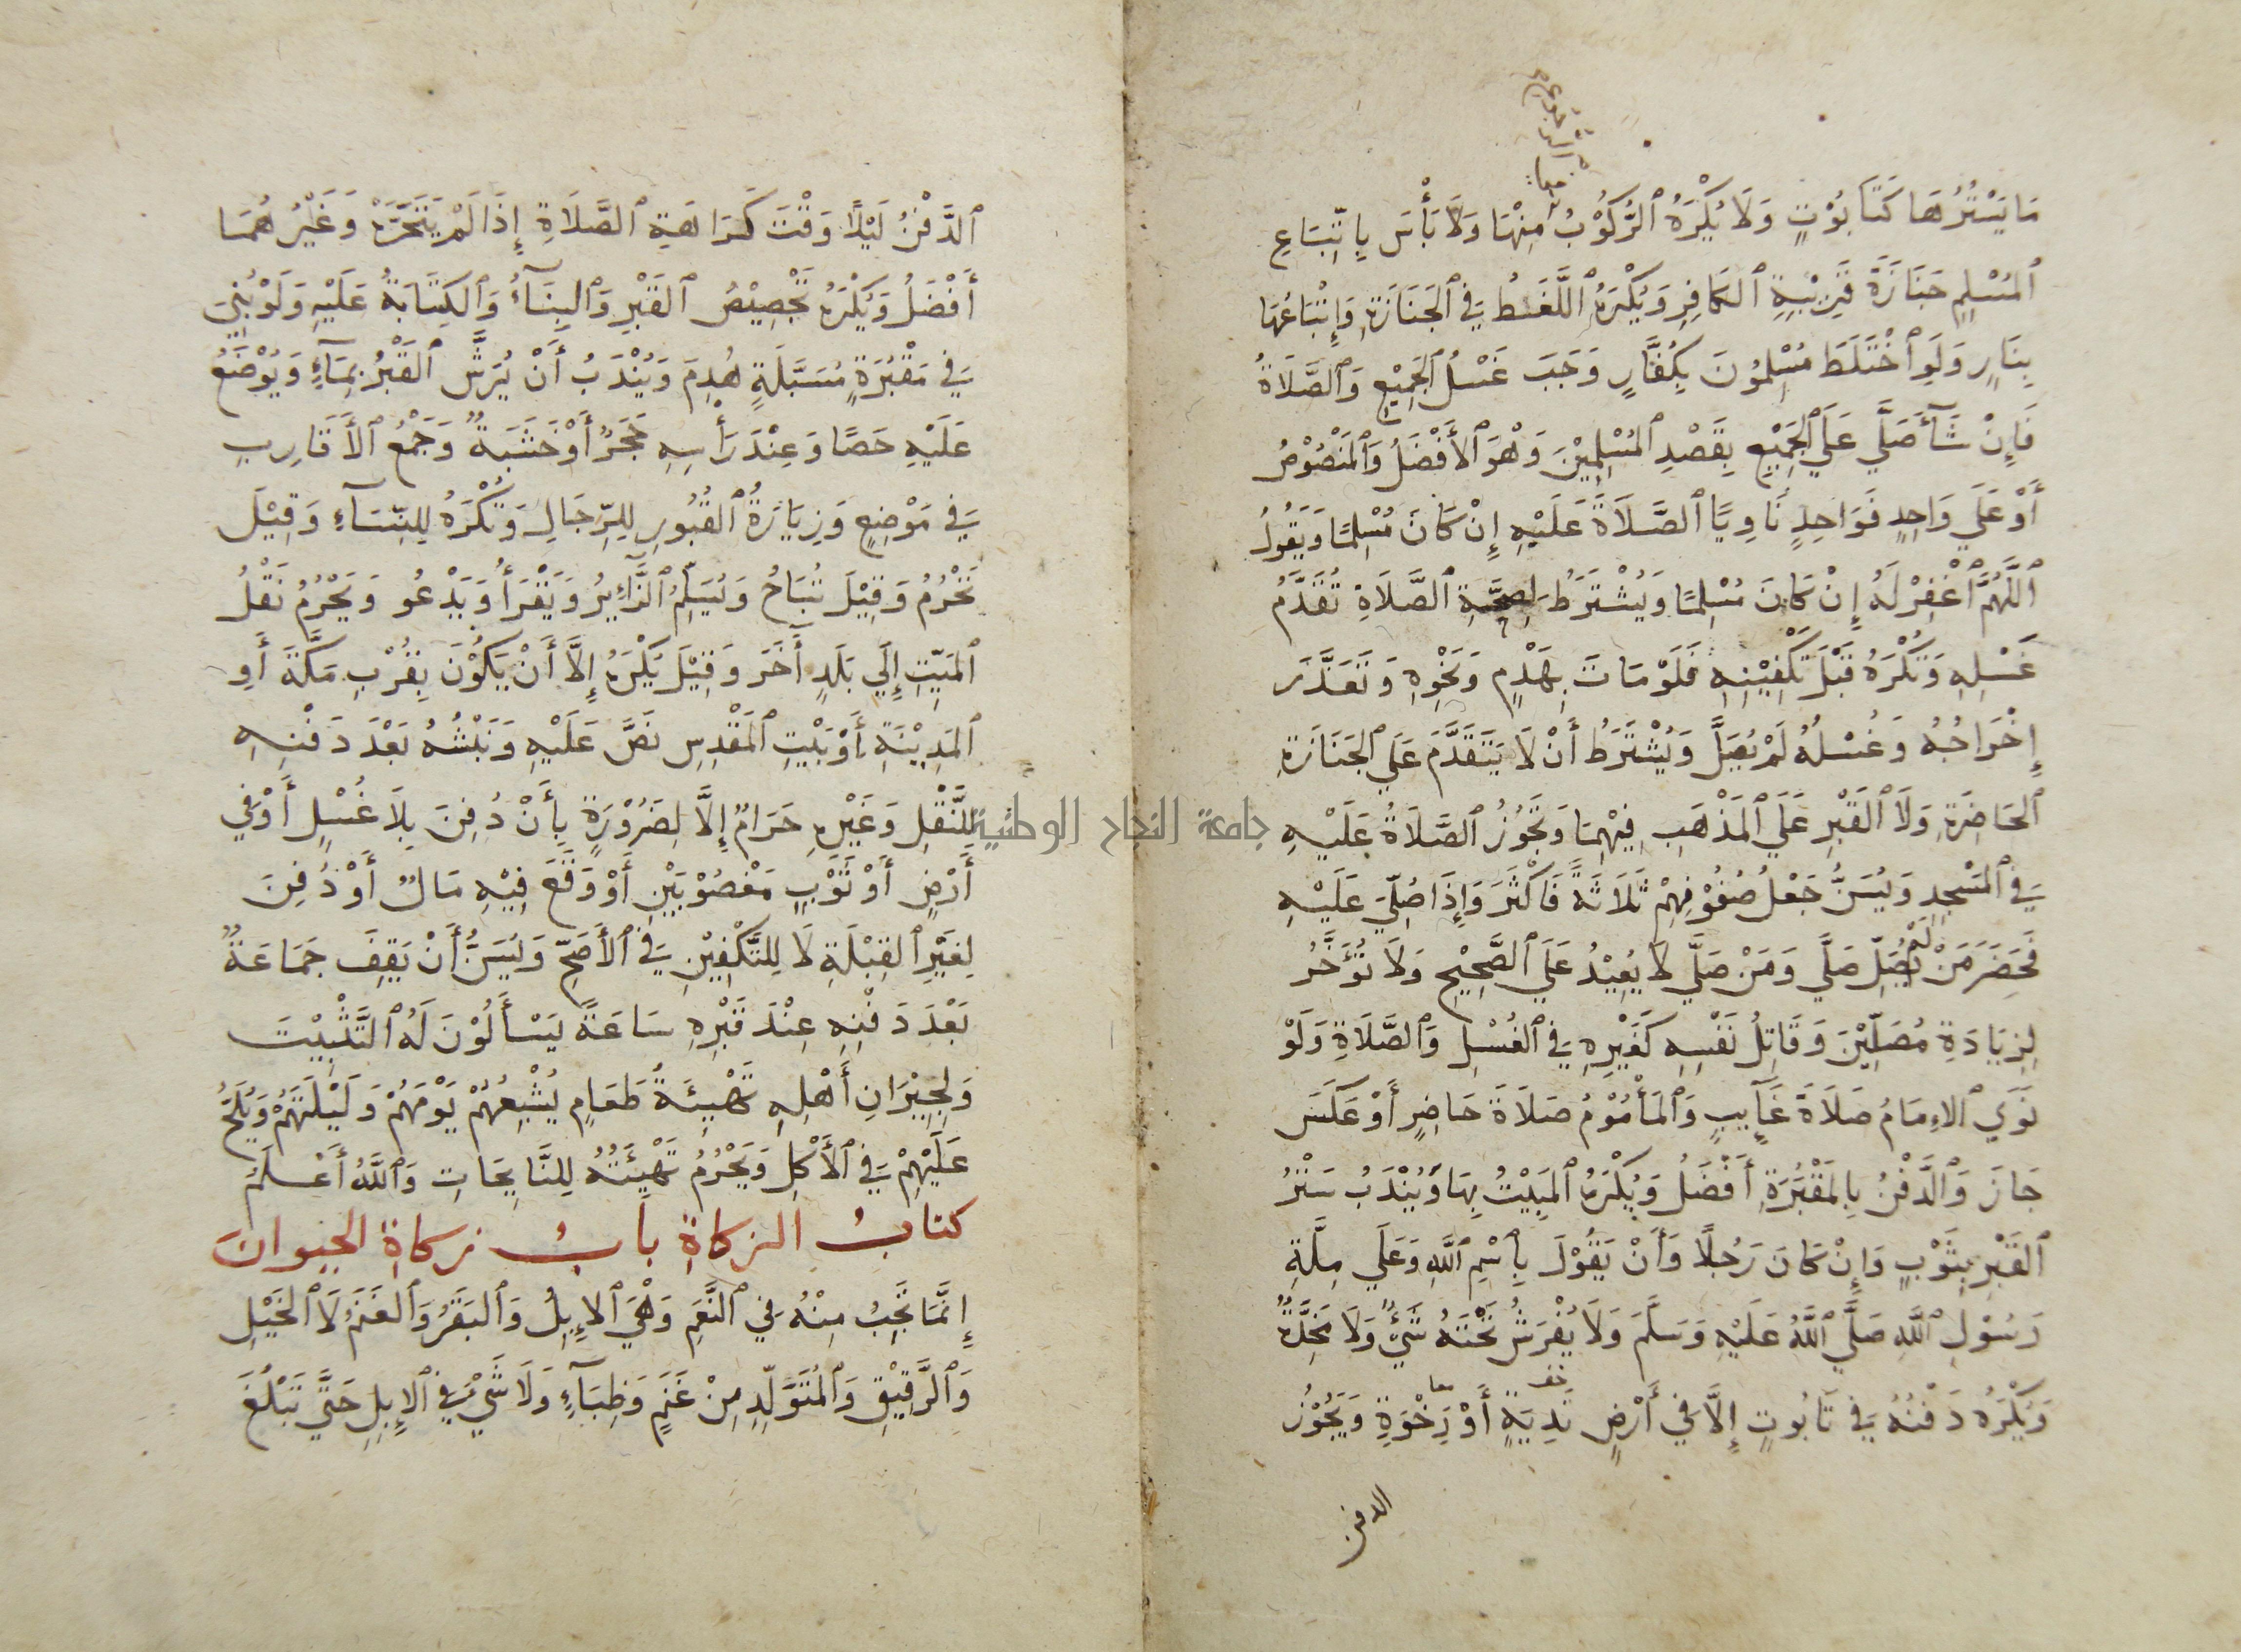 مَا يَسْتُرُهَا كَتَابُوْتٍ وَلَا يُكْرَهُ ٱلرُّكُوْبُ مِنْهَا وَلَا بَأْسَ بِاتِّبَاعِ
ٱلمُسْلِمِ جَنَازَةَ قَرِيْبِهِ ٱلكَافِرِ وَيُكْرَهُ ٱللَّغَطُ فِي ٱلجَنَازَةِ وَإِتْبَاعُهَا
بِنَارٍ وَلَوِ ٱخْتَلَطَ مُسْلِمُونَ بِكُفَّارٍ وَجَبَ غَسْلُ ٱلجَمِيْعِ وَٱلصَّلَاةُ
فَإِنْ شَآءَ صَلَّي عَلَي ٱلجَمِيْعِ بِقَصْدِ ٱلمُسْلِمِيْنَ وَهْوَ ٱلأَفْضَلُ وَٱلمَنْصُوْصُ
أَوْ عَلَي وَاحِدٍ فَوَاحِدٍ نَاوِيًا ٱلصَّلَاةَ عَلَيْهِ إِنْ كَانَ مُسْلِمًا وَيَقُولُ
ٱللَّهُمَّ ٱغْفِرْ لَهُ إِنْ كَانَ مُسْلِمًا وَيُشْتَرَطُ لِصِحَّةِ ٱلصَّلَاةِ تَقَدُّمُ
غَسْلِهِ وَتُكْرَهُ قَبْلَ تَكْفِيْنِهِ فَلَوْ مَاتَ بِهَدْمٍ وَنَحْوِهِ وَتَعَذَّرَ
إِخْرَاجُهُ وَغُسْلُهُ لَمْ يُصَلَّ وَيُشْتَرَطُ أَنْ لَا يَتَقَدَّمَ عَلَي ٱلجَنَازَةِ
ٱلحَاضِرَةِ وَلَا ٱلقَبْرِ عَلَي ٱلمَذْهَبِ فِيْهِمَا وَتَجُوْزُ ٱلصَّلَاةُ عَلَيْهِ
فِي ٱلمَسْجِدِ وَيُسَنُّ جَعْلُ صُفُوْفِهِمْ ثَلَاثَةً فَأَكْثَرَ وَإِذَا صُلِّيَ عَلَيْهِ
فَحَضَرَ مَنْ لَمْ يُصَلِّ صَلَّي وَمَنْ صَلَّي لَا يُعِيْدُ عَلَي ٱلصَّحِيْحِ وَلَا تُؤَخَّرُ
لِزِيَادَةِ مُصَلِّيْنَ وَقَاتِلُ نَفْسِهِ كَغَيْرِهِ فِي ٱلغُسْلِ وَٱلصَّلَاةِ وَلَوْ
نَوَي ٱلاِمَامُ صَلَاةَ غَآيِبٍ وَٱلمَأْمُوْمُ صَلَاةَ حَاضِرٍ أَوْ عَكَسَ
جَازَ وَٱلدَّفْنُ بِالمَقْبَرَةِ أَفْضَلُ وَيُكْرَهُ ٱلمَبِيْتُ بِهَا وَيُنْدَبُ سَتْرُ
ٱلقَبْرِ بِثَوْبٍ وَإِنْ كَانَ رَجُلًا وَأَنْ يَقُوْلَ بِاسْمِ ٱللَّهِ وَعَلَي مِلَّةِ
رَسُوْلِ ٱللَّهِ صَلَّي ٱللَّهُ عَلَيْهِ وَسَلَّمَ وَلَا يُفْرَشُ تَحْتَهُ شَيْءٌ وَلَا مِخَدَّةٌ
وَيُكْرَهُ دَفْنُهُ فِي تَابُوتٍ إِلَّا فِي أَرْضٍ نَدِيَةٍ أَوْ رَِخْوَةٍ وَيَجُوْزُ
خف
معا
الدفن
ٱلدَّفْنُ لَيْلًا وَوَقْتَ كَرَاهَةِ ٱلصَّلَاةِ إِذَا لَمْ يَتَحَرَّهُ وَغَيْرُهُمَا
أَفْضَلُ وَيُكْرَهُ تَجْصِيْصُ ٱلقَبْرِ وَٱلبِنَآءُ وَٱلكِتَابَةُ عَلَيْهِ وَلَوْ بُنِيَ
فِي مَقْبُرَةٍ مُسَبَّلَةٍ هُدِمَ وَيُنْدَبُ أَنْ يُرَشَّ ٱلقَبْرُ بِمَآءٍ وَيُوْضَعُ
عَلَيْهِ حَصًا وَعِنْدَ رَأْسِهِ حَجَرٌ أَوْ خَشَبَةٌ وَجَمْعُ ٱلأَقَارِبِ
فِي مَوْضِعٍ وَزِيَارَةُ ٱلقُبُورِ لِلرِّجَالِ وَتُكْرَهُ لِلنِّسَآءِ وَقِيْلَ
تَحْرُمُ وَقِيْلَ تُبَاحُ وَيُسَلِّمُ ٱلزَّآئِرُ وَيَقْرَأُ وَيَدْعُو وَيَحْرُمُ نَقْلُ
ٱلمَيِّتِ إِلَي بَلَدٍ آخَرَ وَقِيْلَ يُكْرَهُ إِلَّا أَنْ يَكُوْنَ بِقُرْبِ مَكَّةَ أَوِ
ٱلمَدِيْنَةِ أَوْ بَيْتِ ٱلمَقْدِسِ نَصَّ عَلَيْهِ وَنَبْشُهُ بَعْدَ دَفْنِهِ
لِلنَّقْلِ وَغَيْرِهِ حَرَامٌ إِلَّا لِضَرُوْرَةٍ بِأَنْ دُفِنَ بِلَا غُسْلٍ أَوْ فِي
أَرْضٍ أَوْ ثَوْبٍ مَغْصُوْبَيْنِ أَوْ وَقَعَ فِيْهِ مَالٌ أَوْ دُفِنَ
لِغَيْرِ ٱلقِبْلَةِ لَا لِلتَّكْفِيْنِ فِي ٱلأَصَحِّ وَيُسَنُّ أَنْ يَقِفَ جَمَاعَةٌ
بَعْدَ دَفْنِهِ عِنْدَ قَبْرِهِ سَاعَةً يَسْأَلُوْنَ لَهُ ٱلتَّثْبِيْتَ
وَلِجِيْرَانِ أَهْلِهِ تَهْيِئَةُ طَعَامٍ يُشْبِعُهُمْ يَوْمَهُمْ وَلَيْلَتَهُمْ وَيُلَحُّ
عَلَيْهِمْ فِي ٱلأَكْلِ وَيَحْرُمُ تَهْيِئَتُهُ لِلنَّايِحَاتِ وَٱللَّهُ أَعْلَمُ
كتابُ الزكاةِ بابُ زكاةِ الحيوانَ
إِنَّمَا تَجِبُ مِنْهُ فِي ٱلنَّعَمِ وَهْيَ ٱلإِبِلُ وَٱلبَقَرُ وَٱلغَنَمُ لَا ٱلخَيْلِ
وَٱلرَّقِيْقِ وَٱلمُتَوَلِّدِ مِنْ غَنَمٍ وَظِبَآءٍ وَلَا شَيْءَ فِي ٱلإِبِلِ حَتَّي تَبْلُغَ
جامعة النجاح الوطنية